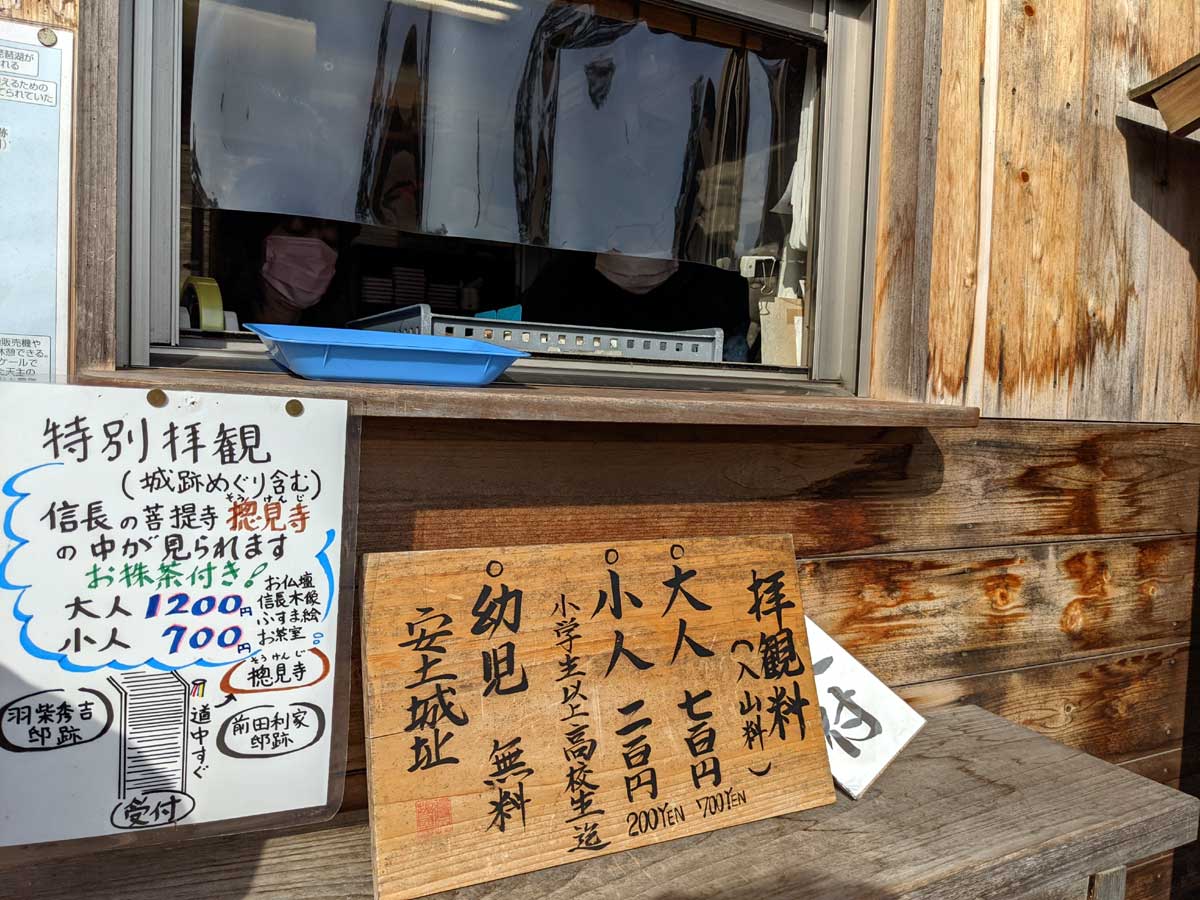 琵琶湖が
れる
えるための
てられていた
跡
販売機や
休憩できる。
ケールで
た天主の
特別拝観
(城跡めぐり含む)
そうけんじ
信長の菩提寺摠見寺
の中が見られます
お抹茶付き!
大人 1200円
小人 700円
お仏壇
信長木像
ふすま絵
お茶室
そうけんじ
摠見寺
羽柴秀吉
邸跡
道中すぐ
前田利家
邸跡
受付
拝観料
(入山料)
○大人 七百円
700YEN
○小人 二百円
200YEN
小学生以上高校生迄
○幼児 無料
安土城址
付